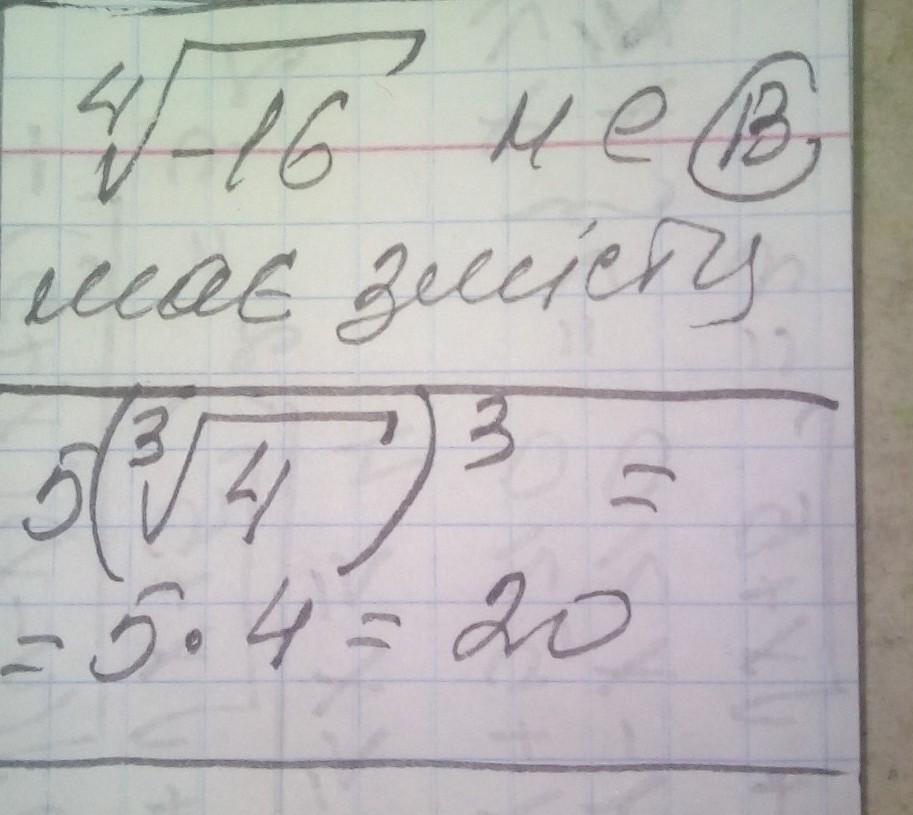 ∜-16 не В
має змісту
5(∛4)³ =
= 5·4 = 20